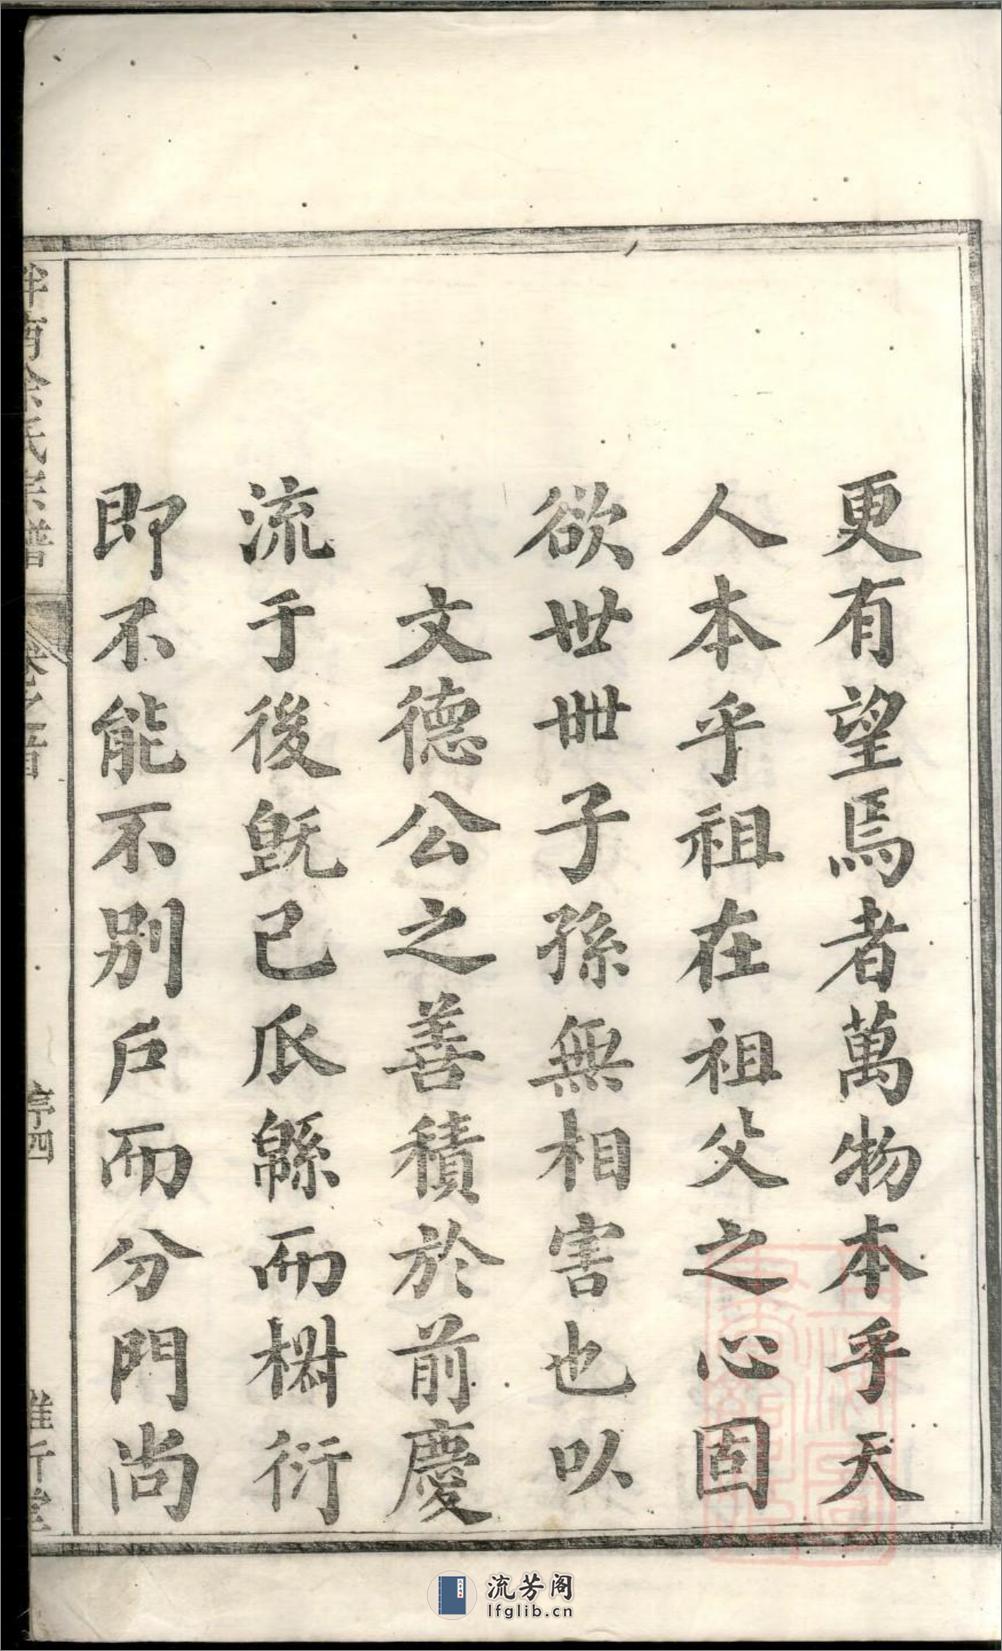 更有望焉者萬物本乎天
人本乎祖在祖父之心固
欲世世子孫無相害也以
文德公之善積於前慶
流于後旣已瓜緜而椒衍
即不能不別戶而分門尚
余氏宗譜
卷之首
序四
流芳阁
lfglib.cn